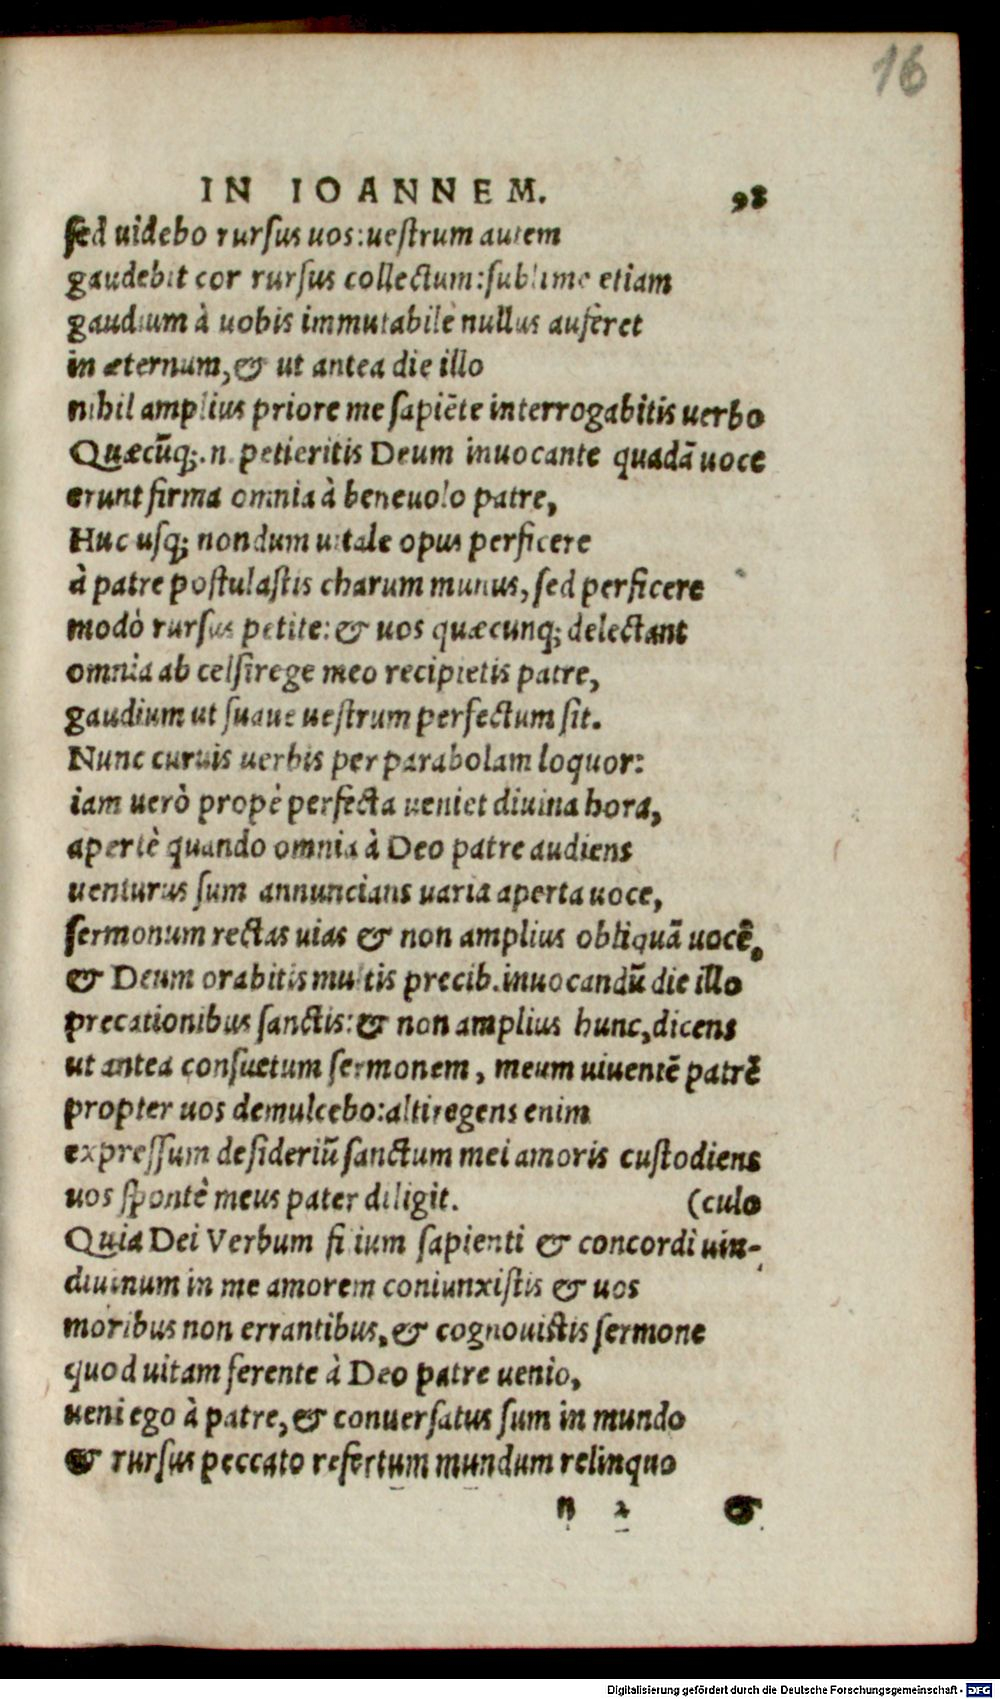 16
IN IOANNEM. 98
sed uidebo rursus uos:uestrum autem
gaudebit cor rursus collectum:sublime etiam
gaudium à uobis immutabilè nullus auferet
in æternum,& ut antea die illo
nihil amplius priore me sapiẽte interrogabitis uerbo
Quæcũq;.n. petieritis Deum inuocante quadã uoce
erunt firma omnia à beneuolo patre,
Huc usq; nondum uitale opus perficere
à patre postulastis charum munus, sed perficere
modò rursus petite: & uos quæcunq; delectant
omnia ab celsirege meo recipietis patre,
gaudium ut suaue uestrum perfectum sit.
Nunc curuis uerbis per parabolam loquor:
iam uerò propè perfecta ueniet diuina hora,
apertè quando omnia à Deo patre audiens
uenturus sum annuncians uaria aperta uoce,
sermonum rectas uias & non amplius obliquã uocẽ.
& Deum orabitis multis precib.inuocandũ die illo
precationibus sanctis:& non amplius hunc,dicens
ut antea consuetum sermonem, meum uiuentẽ patrẽ
propter uos demulcebo:altiregens enim
expressum desideriũ sanctum mei amoris custodiens
uos spontè meus pater diligit. (culo
Quia Dei Verbum filium sapienti & concordi uin-
diuinum in me amorem coniunxistis & uos
moribus non errantibus,& cognouistis sermone
quod uitam ferente à Deo patre uenio,
ueni ego à patre,& conuersatus sum in mundo
& rursus peccato refertum mundum relinquo
n 2 &
Digitalisierung gefördert durch die Deutsche Forschungsgemeinschaft - DFG